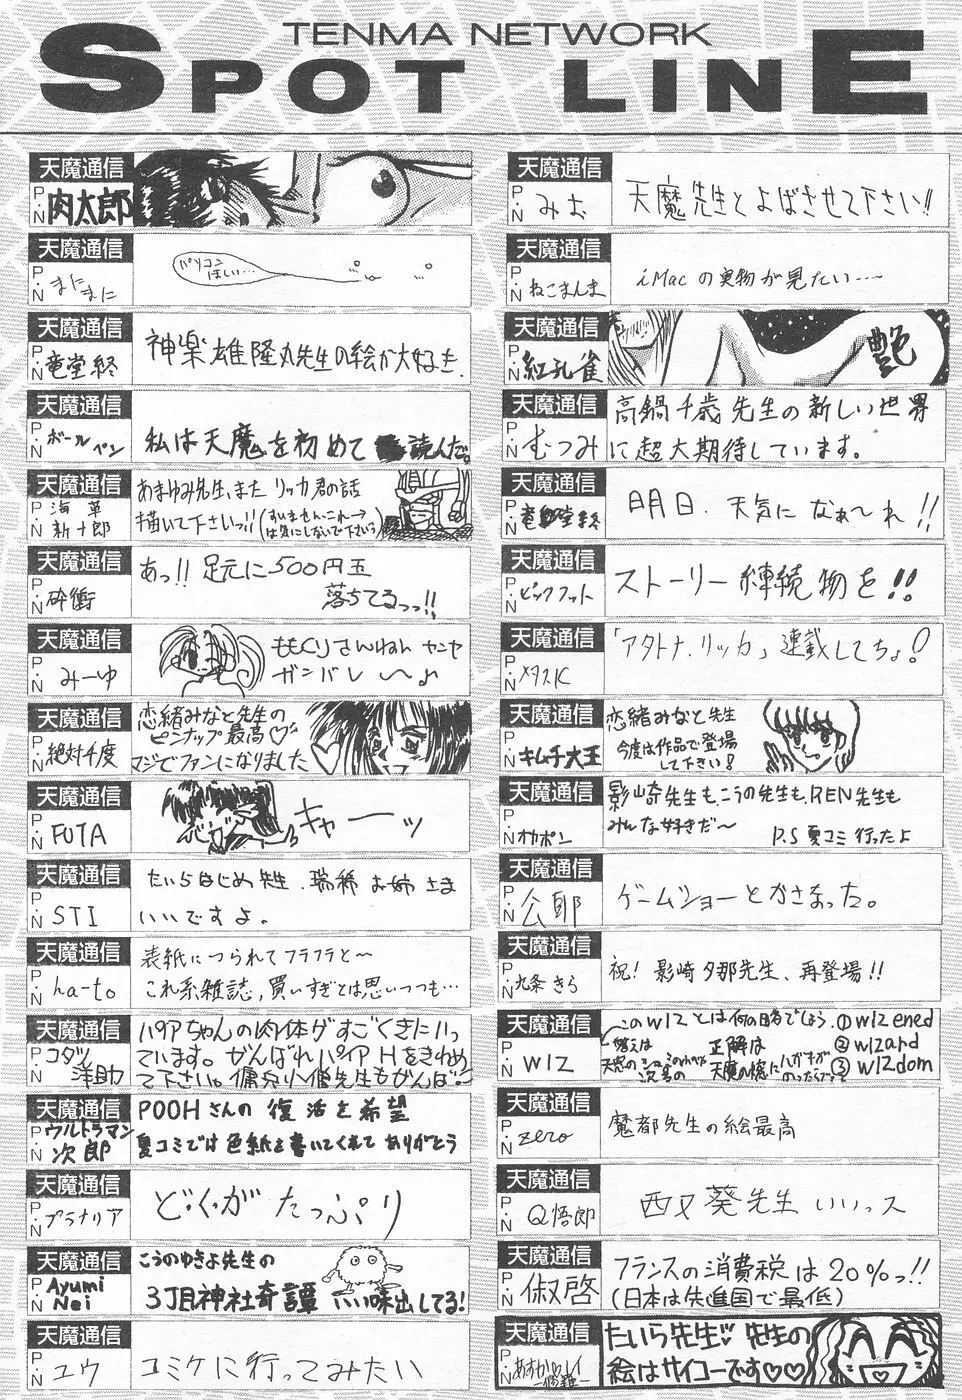 TENMA NETWORK
SPOT LINE
天魔通信
P・N 肉太郎
天魔通信
P・N まにまに
パソコンほしい…
天魔通信
P・N 竜堂終
神楽雄隆丸先生の絵が大好き.
天魔通信
P・N ボールペン
私は天魔を初めて読んだ。
天魔通信
P・N 海草新十郎
あまゆみ先生、また リッカ君の話
描いて下さいっ!!(すいません、これ→
は気にしないで下さい)
天魔通信
P・N 砕衝
あっ!! 足元に500円玉
落ちてるっっ!!
天魔通信
P・N みーゆ
ももくりさんねん
ガンバレ 〜♪
天魔通信
P・N 絶対千度
恋緒みなと先生の
ピンナップ最高♡
マジでファンになりました
天魔通信
P・N FUTA
キャーッ
天魔通信
P・N STI
たいらはじめ先生、瑞稀お姉さま
いいですよ。
天魔通信
P・N ha-to
表紙につられてフラフラと〜
これ系雑誌,買いすぎとは思いつつも…
天魔通信
P・N コダツ洋助
パイアちゃんの肉体がすごくきにいっ
ています。がんばれパイア Hをきわめ
て下さい。傭兵小僧先生もがんば
天魔通信
P・N ウルトラマン次郎
POOHさんの 復活を希望
夏コミでは色紙を書いてくれて ありがとう
天魔通信
P・N プラナリア
どくがたっぷり
天魔通信
P・N Ayumi Nei
こうのゆきよ先生の
3丁目神社奇譚 いい味出してる!
天魔通信
P・N ユウ
コミケに行ってみたい
天魔通信
P・N みお
天魔先生とよばさせて下さい!!
天魔通信
P・N ねこまんま
iMacの実物が見たい……
天魔通信
P・N 紅孔雀
艶
天魔通信
P・N むつみ
高鍋千歳先生の新しい世界
に超大期待しています。
天魔通信
P・N 竜堂終
明日、天気になぁ〜れ!!
天魔通信
P・N ビックフット
ストーリー継続物を!!
天魔通信
P・N メタスK
「アタトナ.リッカ」連載してちょ!
天魔通信
P・N キムチ大王
恋緒みなと先生
今度は作品で登場
して下さい!
天魔通信
P・N オカポン
影崎先生も、こうの先生も、REN先生も
みんな好きだ〜 P.S 夏コミ行ったよ
天魔通信
P・N 公耶
ゲームショーとかさなった。
天魔通信
P・N 九条きら
祝! 影崎夕那先生、再登場!!
天魔通信
P・N WIZ
このWIZとは何の略でしょう.①wizened
②wizard
③wizdom
答えは
正解は
天魔通信
P・N zero
魔都先生の絵最高
天魔通信
P・N Q悟郎
西又葵先生 いいっス
天魔通信
P・N 俶啓
フランスの消費税は20%っ!!
(日本は先進国で最低)
天魔通信
P・N
たいら先生♡ 先生の
絵はサイコーです♡♡